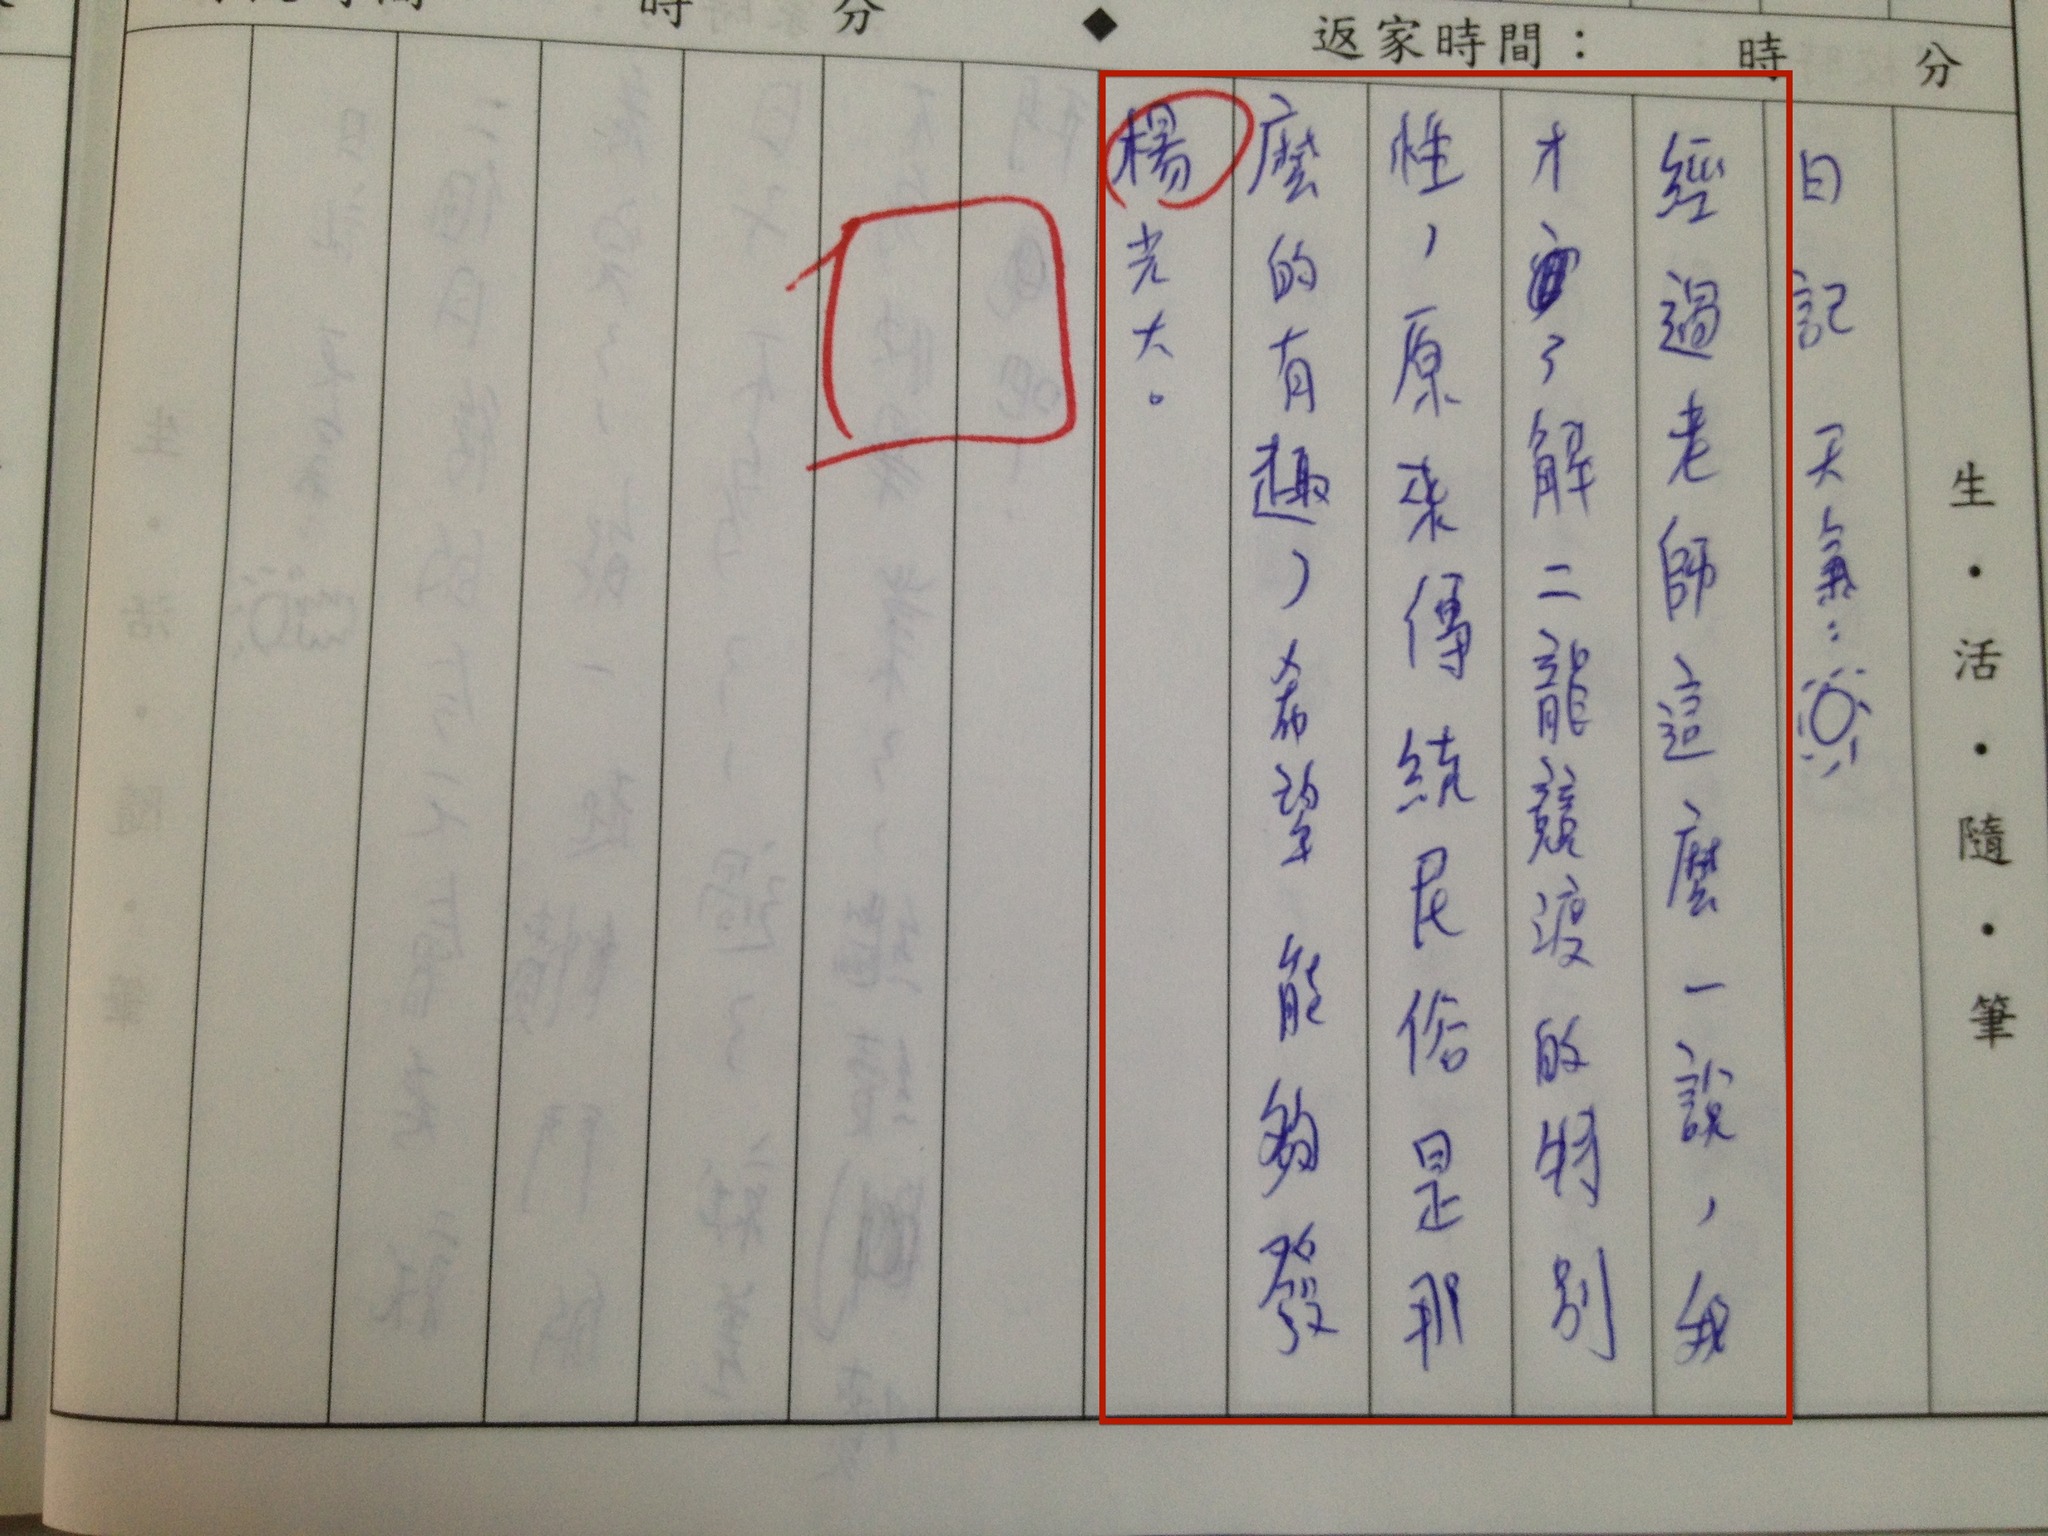 時 分 ◆ 返家時間： 時 分
生・活・隨・筆
日記 天氣：
經過老師這麼一說，我
才了解二龍競渡的特別
性，原來傳統民俗是那
麼的有趣，希望能夠發
楊光大。